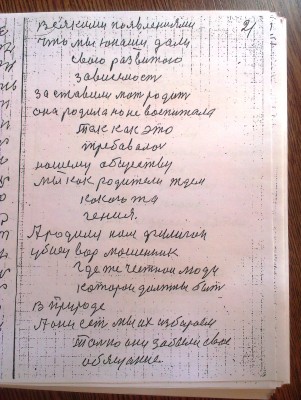 2)
Всякими появлениями
что мы юнаши дали
свого развитого
зависемост
заставили мат родит
она родила но не воспитала
так как это
требавалос
нашему обществу
мы как родители ждем
какого то
гения.
А родили нам
убиец вор мошенник
Где же честном люди
которои должны быт
в природе
А они ест мы их избираем
толко они забыли свое
обящание